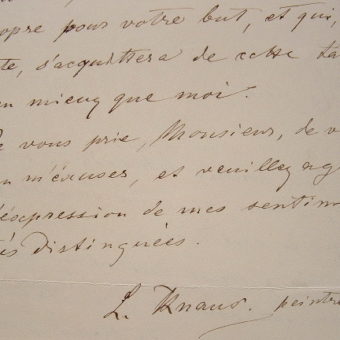 opre pour votre but, et qui,
te, s'acquittera de cette ta
en mieux que moi.
e vous prie, Monsieur, de v
en m'excuser, et veuillez ag
l'expression de mes sentim
és distinguées.
L. Knaus. peintre